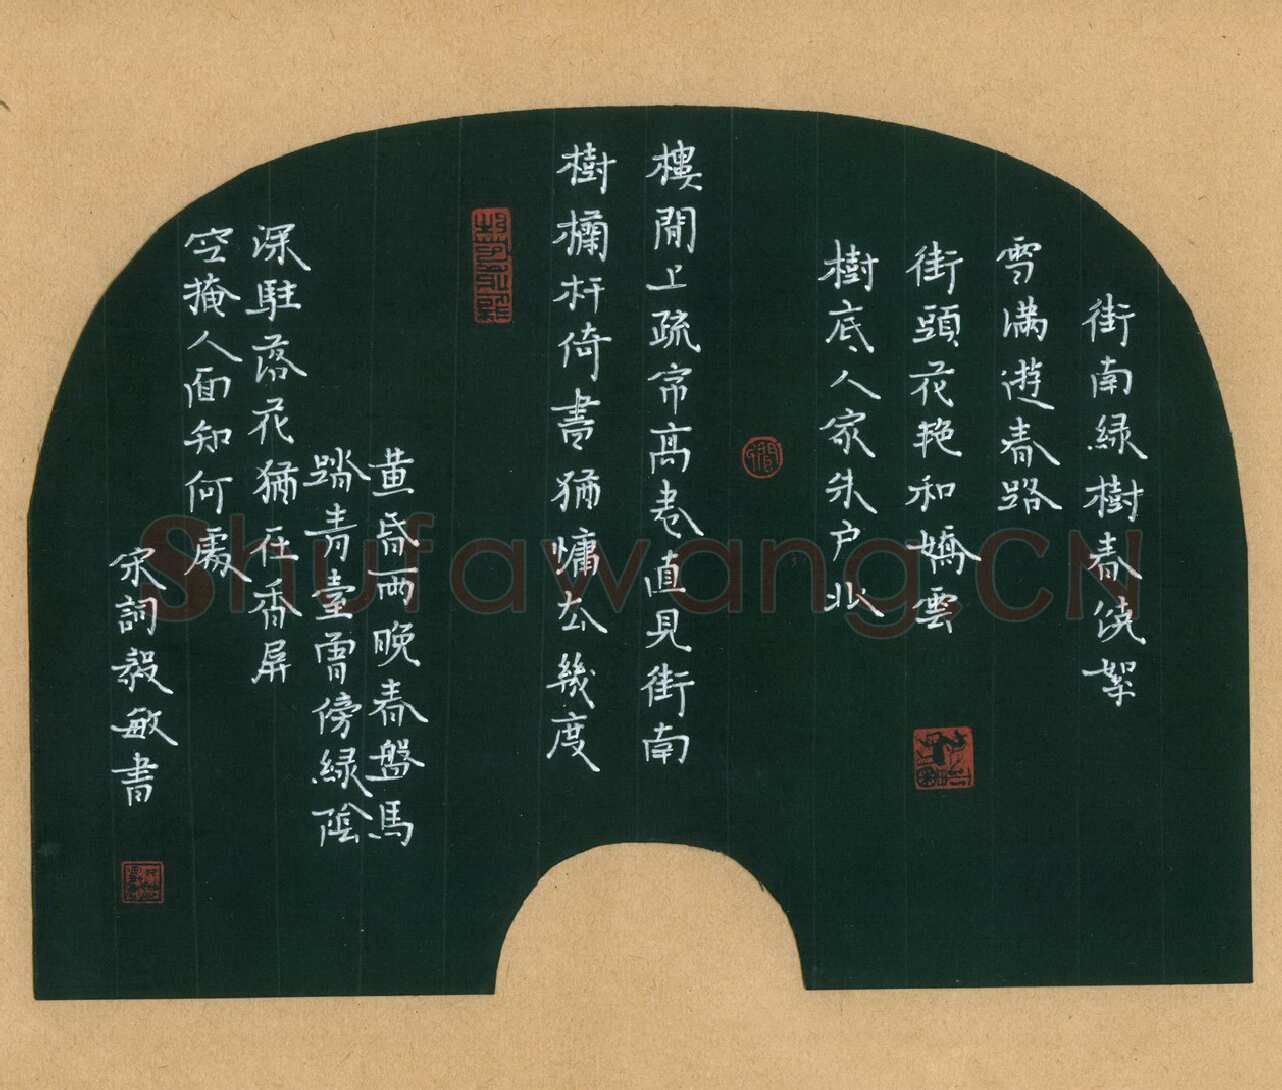 街南緑樹春饒絮
雪滿遊春路
街頭花艷和嬌雲
樹底人家朱戶北
樓閒上疏帘高卷直見街南
樹欄杆倚書猶慵去幾度
黄昏雨晚春盤馬
踏青臺曾傍緑陰
深駐落花猶在香屏
空掩人面知何處
宋詞毅敏書
Shufawang.CN